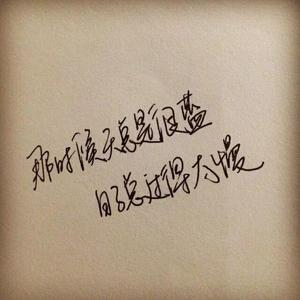 那时候天总是很蓝
日子总过得太慢